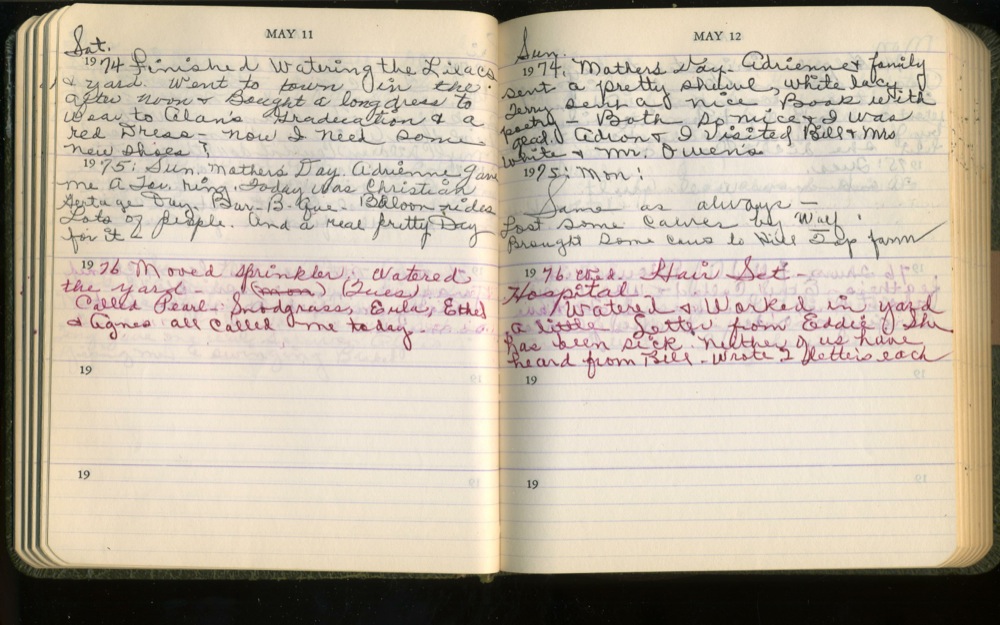 MAY 11
Sat.
1974 Finished Watering the Lilacs
& yard. Went to town in the
after noon & Bought a long dress to
wear to Alan's Graducation & a
red Dress - now I need some
new shoes?
1975: Sun. Mothers Day. Adrienne gave
me a ring. Today was Christian
Day. Bar-B-Que. Baloon rides
Lots of people. And a real pretty Day
for it
1976 Moved sprinkler. Watered
the yard - (mon) (Tues)
Called Pearl. Snodgrass, Eula, Ethel
& Agnes all called me today
19
19
MAY 12
Sun.
1974: Mothers Day. Adrienne & family
sent a pretty shawl, white lacy.
Terry sent a nice Book with
poetry - Both so nice & I was
glad. Adron & I visited Bill & Mrs
White & Mr. Owens
1975: Mon:
Same as always -
Lost some calves by Way!
Brought some cows to Hill Top farm
1976 Wed. Hair Set -
Hospital
Waterd & Worked in yard
a little. Letter from Eddie. She
has been sick. Neither of us have
heard from Bill. Wrote 2 letters each
19
19